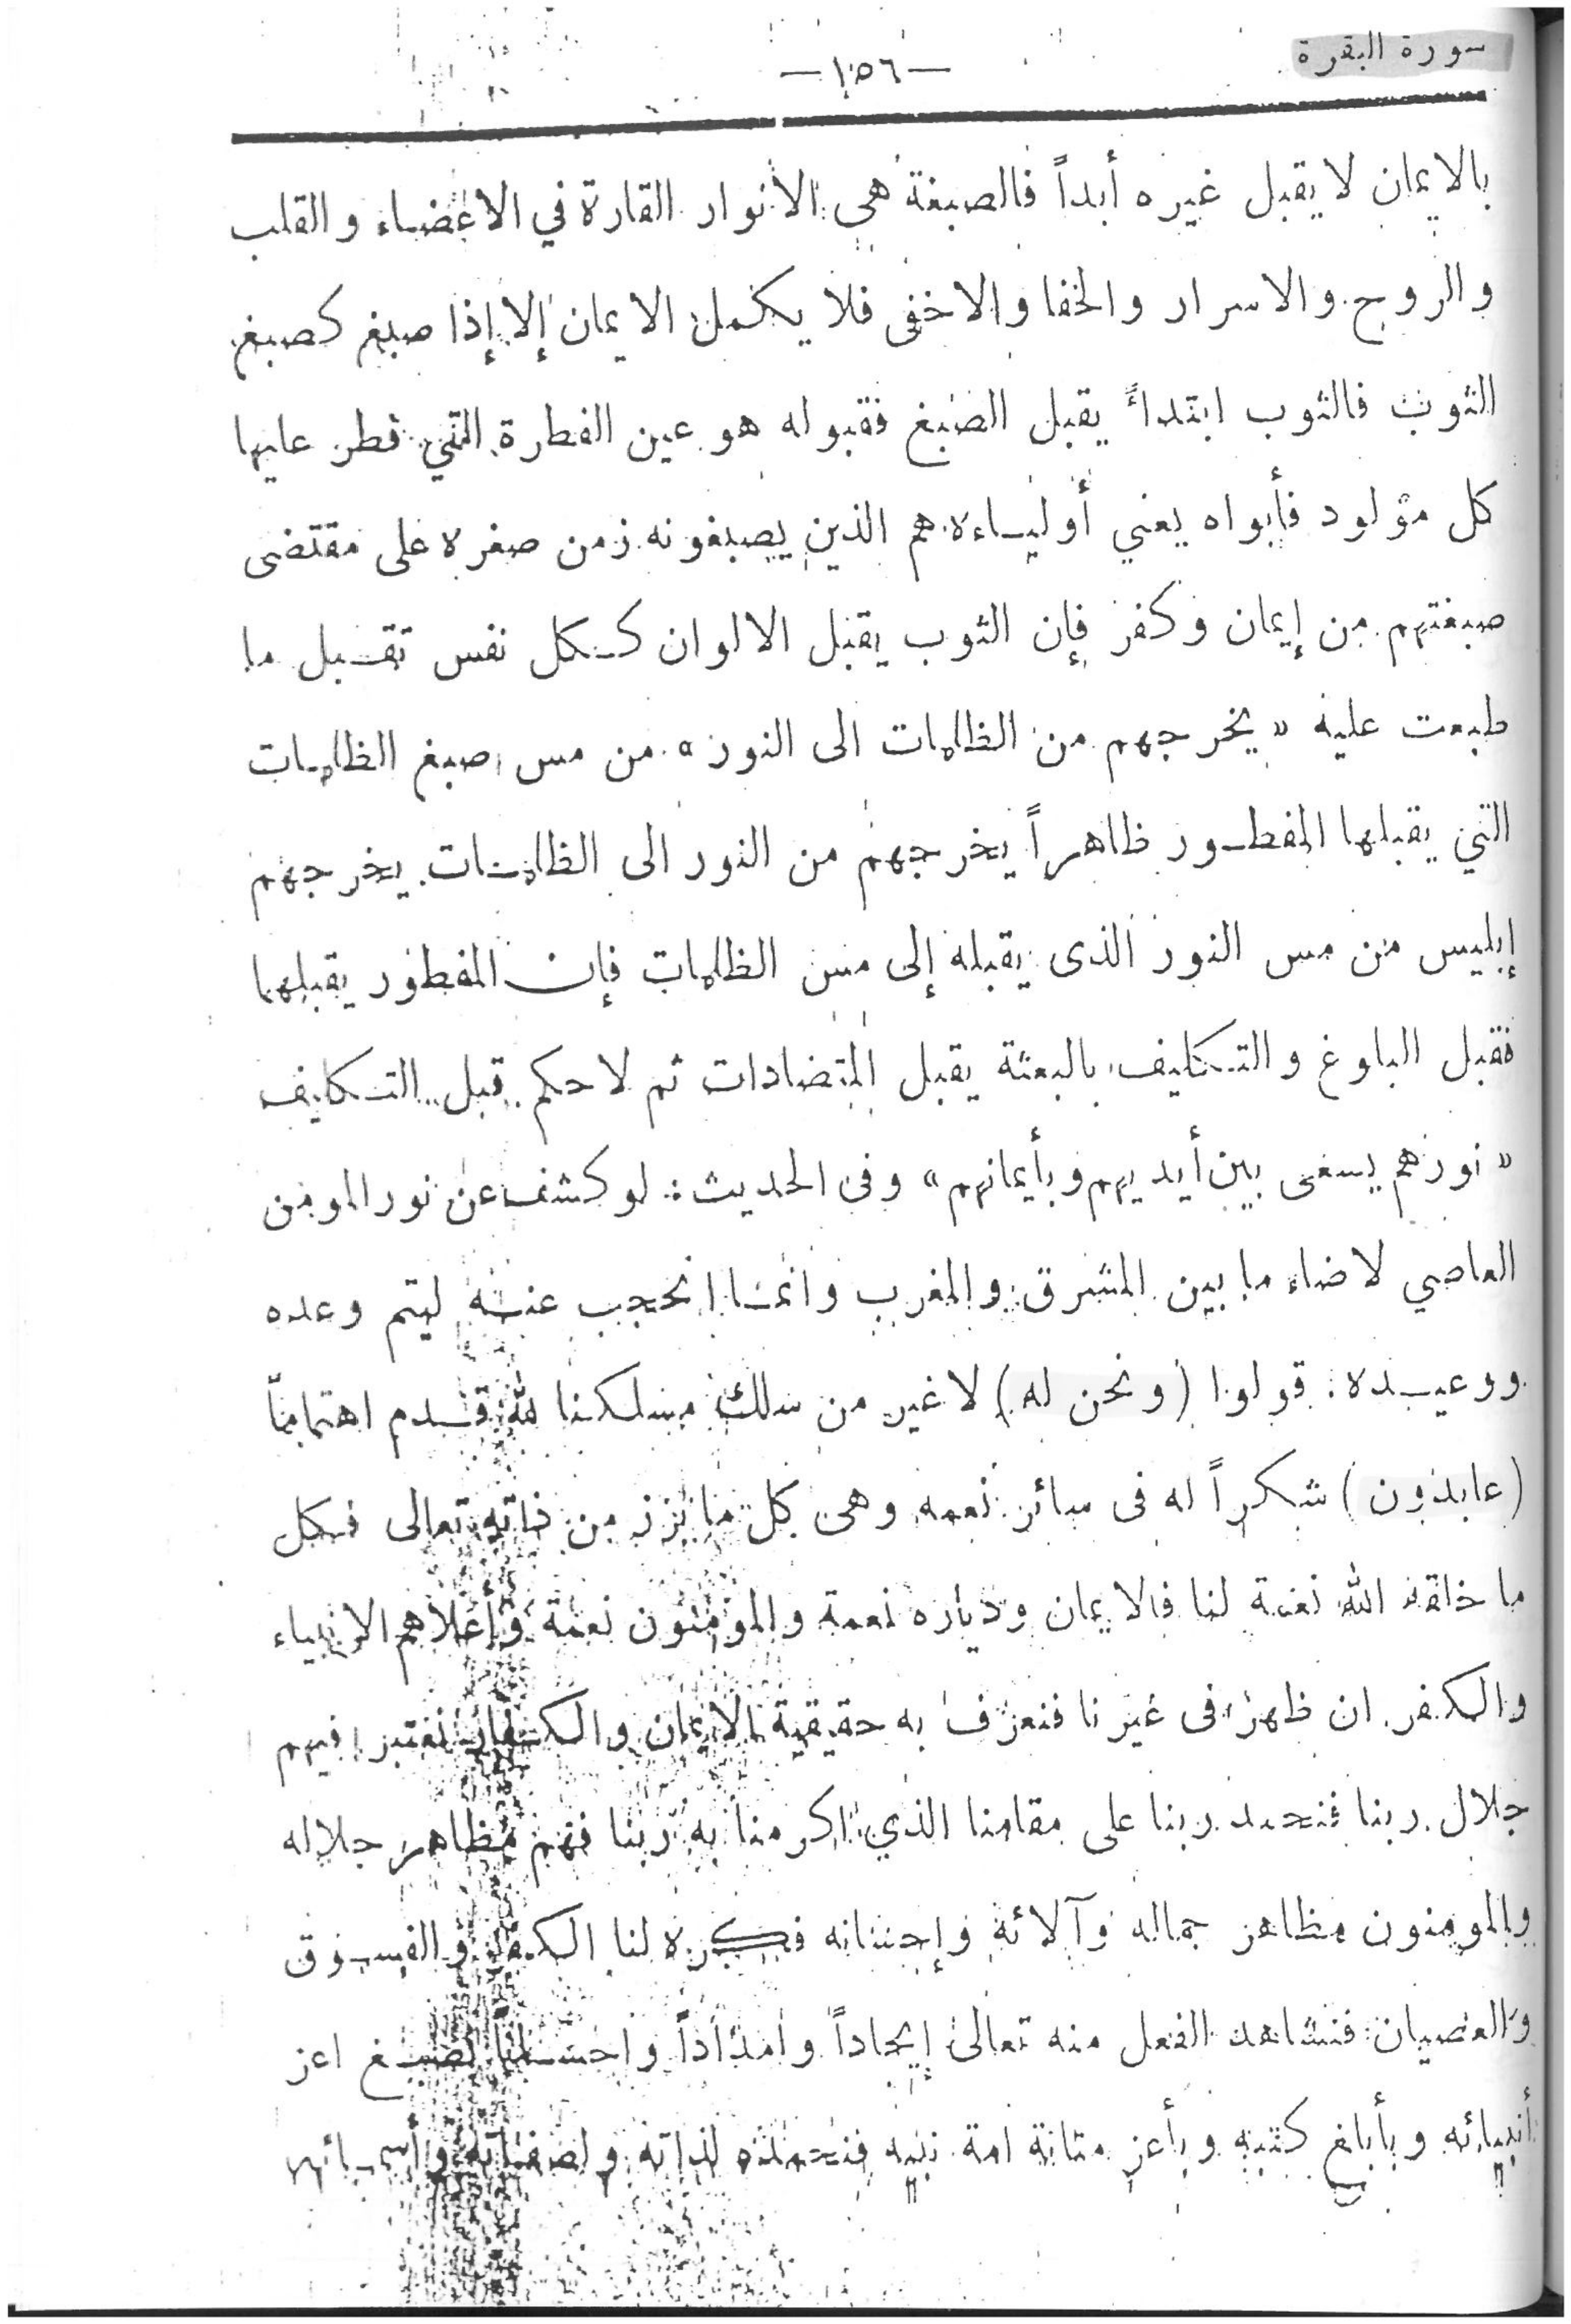 سورة البقرة
—١٥٦—
بالايمان لا يقبل غيره أبداً فالصبغة هى الانوار القارة في الاعضاء والقلب
والروح والاسرار والخفا والاخفى فلا يكمل الايمان إلا إذا صبغ كصبغ
الثوب فالثوب ابتداءً يقبل الصبغ فقبوله هو عين الفطرة التي فطر عليها
كل مؤلود فأبواه يعني أولياءه هم الذين يصبغونه زمن صغره على مقتضى
صبغتهم من إيمان وكفر فإن الثوب يقبل الالوان ككل نفس تقبل ما
طبعت عليه « يخرجهم من الظلمات الى النور » من مس صبغ الظلمات
التي يقبلها المفطور ظاهراً يخرجهم من النور الى الظلمات يخرجهم
إبليس من مس النور الذى يقبله إلى مس الظلمات فإن المفطور يقبلهما
فقبل البلوغ والتكليف بالبعثة يقبل المتضادات ثم لا حكم قبل التكليف
« نورهم يسعى بين أيديهم وبأيمانهم » وفى الحديث : لو كشف عن نور المومن
العاصي لاضاء ما بين المشرق والمغرب وانما انحجب عنه ليتم وعده
ووعيده : قولوا ( ونحن له ) لا غير من سلك مسلكنا لله قدم اهتماماً
( عابدون ) شكراً له فى سائر نعمه وهى كل ما برز من ذاته تعالى فكل
ما خلقه الله نعمة لنا فالايمان ودياره نعمة والمومنون نعمة وأعلاهم الانبياء
والكفر ان ظهر فى غيرنا فنعرف به حقيقية الايمان والكفار نعتبر فيهم
جلال ربنا فنحمد ربنا على مقامنا الذي اكرمنا به ربنا فهم مظاهر جلاله
والمومنون مظاهر جماله وآلائه وإحسانه فكره لنا الكفر والفسوق
والعصيان فنشاهد الفعل منه تعالى إيجاداً وامداداً واحساناً لصبغ اعز
أنبيائه وبأبلغ كتبه وبأعز مثانة امة نبيه فنحمده لذاته ولصفاته وأسمائه